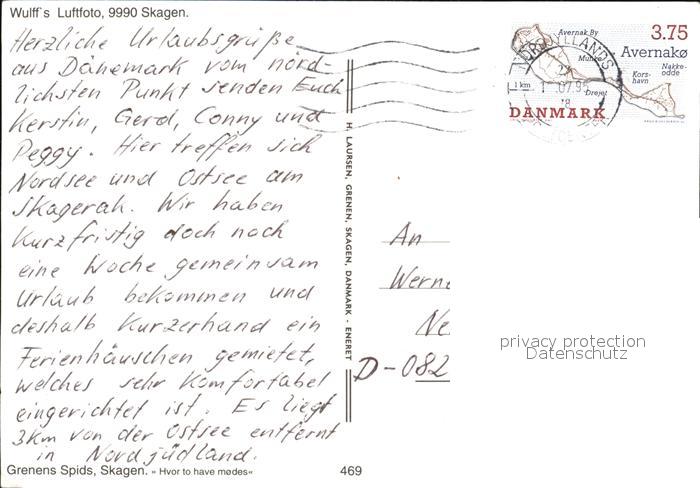 Wulff's Luftfoto, 9990 Skagen.
Herzliche Urlaubsgrüße
aus Dänemark vom nörd-
lichsten Punkt senden Euch
Kerstin, Gerd, Conny und
Peggy. Hier treffen sich
Nordsee und Ostsee am
Skagerak. Wir haben
kurzfristig doch noch
eine Woche gemeinsam
Urlaub bekommen und
deshalb kurzerhand ein
Ferienhäuschen gemietet,
welches sehr komfortabel
eingerichtet ist. Es liegt
3km von der Ostsee entfernt
in Nordjüdland.
Grenens Spids, Skagen. »Hvor to have mødes«
469
H. LAURSEN, GRENEN, SKAGEN, DANMARK - ENERET
3.75
Avernakø
Avernak By
Munke
Nakke-
odde
Kors-
havn
Drejet
1 km
DANMARK
An
Wern
Ne
D-082
privacy protection
Datenschutz